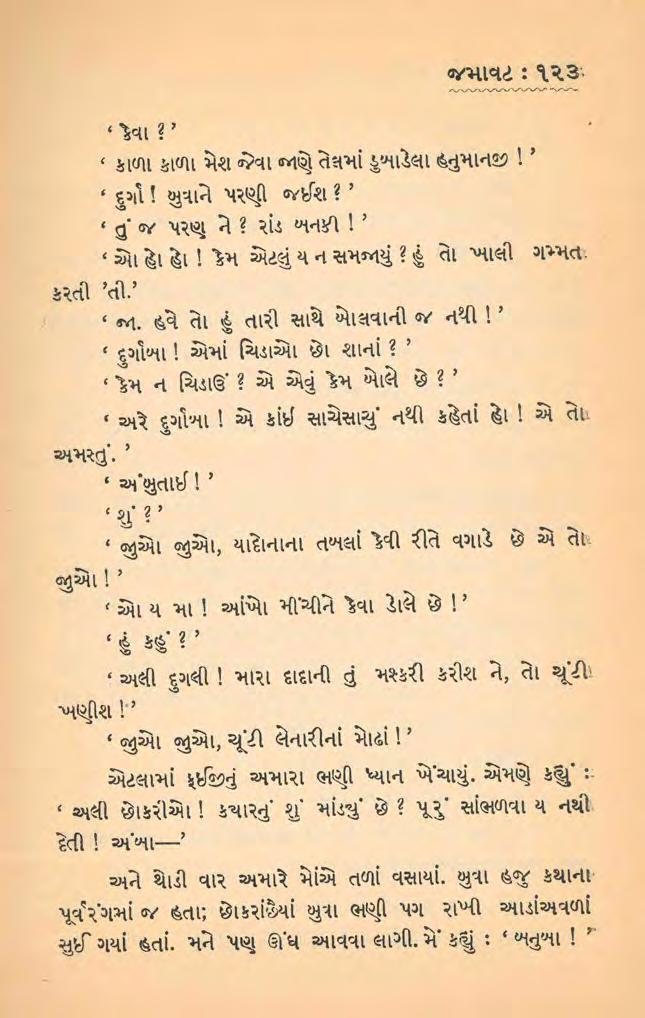 જમાવટ : ૧૨૩
‘ કેવા ? ’
‘ કાળા કાળા મેશ જેવા જાણે તેલમાં ડુબાડેલા હનુમાનજી ! ’
‘ દુર્ગા ! બુવાને પરણી જઈશ ? ’
‘ તું જ પરણ ને ? રાંડ બનકી ! ’
‘ ઓ હો હો ! કેમ એટલું ય ન સમજાયું ? હું તો ખાલી ગમ્મત
કરતી ’તી.’
‘ જા. હવે તો હું તારી સાથે બોલવાની જ નથી ! ’
‘ દુર્ગાબા ! એમાં ચિડાઓ છો શાનાં ? ’
‘ કેમ ન ચિડાઉં ? એ એવું કેમ બોલે છે ? ’
‘ અરે દુર્ગાબા ! એ કાંઈ સાચેસાચું નથી કહેતાં હો ! એ તો
અમસ્તું. ’
‘ અંબુતાઈ ! ’
‘ શું ? ’
‘ જુઓ જુઓ, યાદોનાના તબલાં કેવી રીતે વગાડે છે એ તો
જુઓ ! ’
‘ ઓ ય મા ! આંખો મીંચીને કેવા ડોલે છે !’
‘ હું કહું ? ’
‘ અલી દુગલી ! મારા દાદાની તું મશ્કરી કરીશ ને, તો ચૂંટી
ખણીશ !’
‘ જુઓ જુઓ, ચૂંટી લેનારીનાં મોઢાં !’
એટલામાં ફઈજીનું અમારા ભણી ધ્યાન ખેંચાયું. એમણે કહ્યું :
‘ અલી છોકરીઓ ! કયારનું શું માંડ્યું છે ? પૂરું સાંભળવા ય નથી
દેતી ! અંબા—’
અને થોડી વાર અમારે મોંએ તળાં વસાયાં. બુવા હજુ કથાના
પૂર્વરંગમાં જ હતા; છોકરાંછૈયાં બુવા ભણી પગ રાખી આડાંઅવળાં
સુઈ ગયાં હતાં. મને પણ ઊંઘ આવવા લાગી. મેં કહ્યું : ‘ બનુબા ! ’